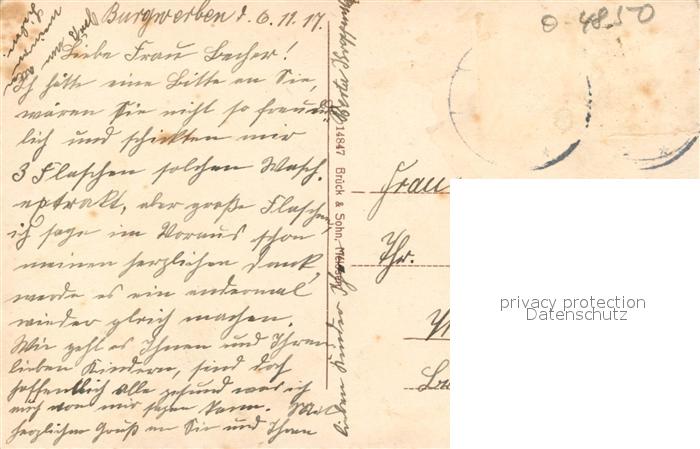 Burgwerben d. 6.11.17.
Liebe Frau Becher!
Ich hätte eine Bitte an Sie,
wären Sie nicht so freund-
lich und schickten mir
3 Flaschen solchen Wasch.
extrakt, aber große Flaschen,
ich sage im Voraus schon
meinen herzlichen Dank,
werde es ein andermal
wieder gleich machen.
Wie geht es Ihnen und Ihren
lieben Kindern, sind doch
hoffentlich alle gesund was ich
auch von mir sagen kann.
herzlichen Gruß an Sie und Ihren
lieben Kinder
4850
14847 Brück & Sohn, Meissen
Frau
Thr.
privacy protection
Datenschutz